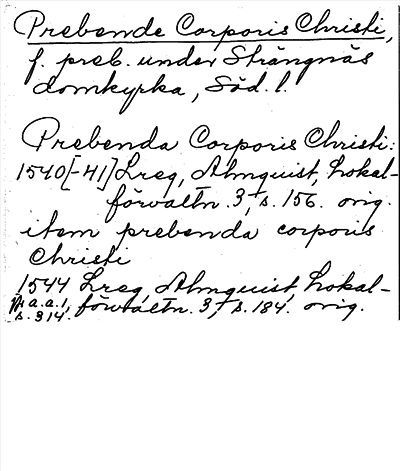 Prebende Corporis Christi,
f. preb. under Strängnäs
domkyrka, Söd. l.
Prebenda Corporis Christi:
1540[-41] Lreg, Almquist, Lokal-
förvaltn. 3, s. 156. orig.
item prebenda corporis
Christi
1544 Lreg, Almquist, Lokal-
a.a. 1, förvaltn. 3, s. 184. orig.
s. 314.